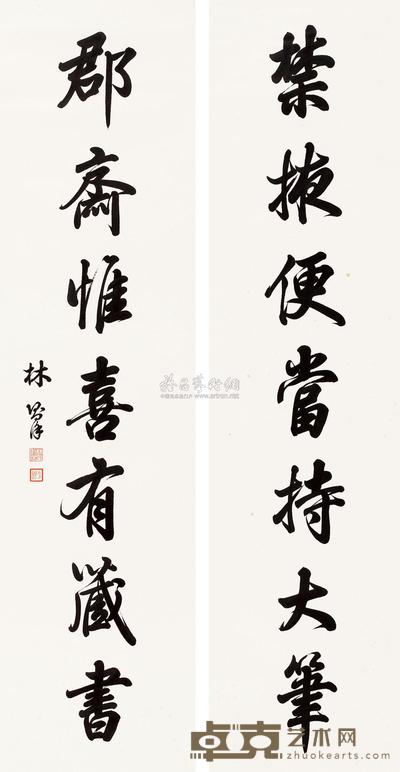 禁掖便當持大筆
郡齋惟喜有藏書
林
www.artron.net
卓克艺术网
zhuokearts.com